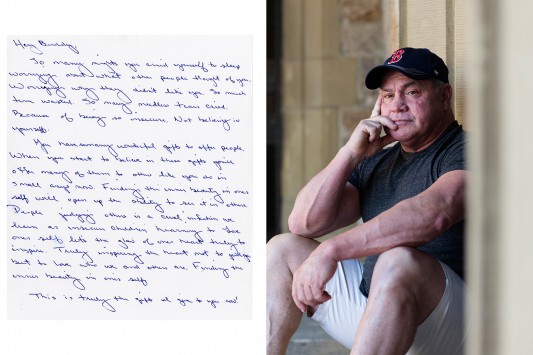 Hey Buddy,
So many nights you cried yourself to sleep
worrying about what other people thought of you.
Worrying why they didn't like you. So much
time wasted. So many needless tears cried.
Because of being so insecure. Not believing in
yourself.
You have so many wonderful gifts to offer people.
When you start to believe in these gifts you'll
offer many of them to others like you do in
small ways now. Finding the inner beauty in ones
self will open up the ability to see it in others.
People judging others is a cruel we
learn as insecure children. Learning to love
ones self lets the of one heart truly to
inspire. Truly inspiring the heart not to judge
but to love who we and others are. Finding the
inner beauty in ones self.
This is truly the gift of you to you
B